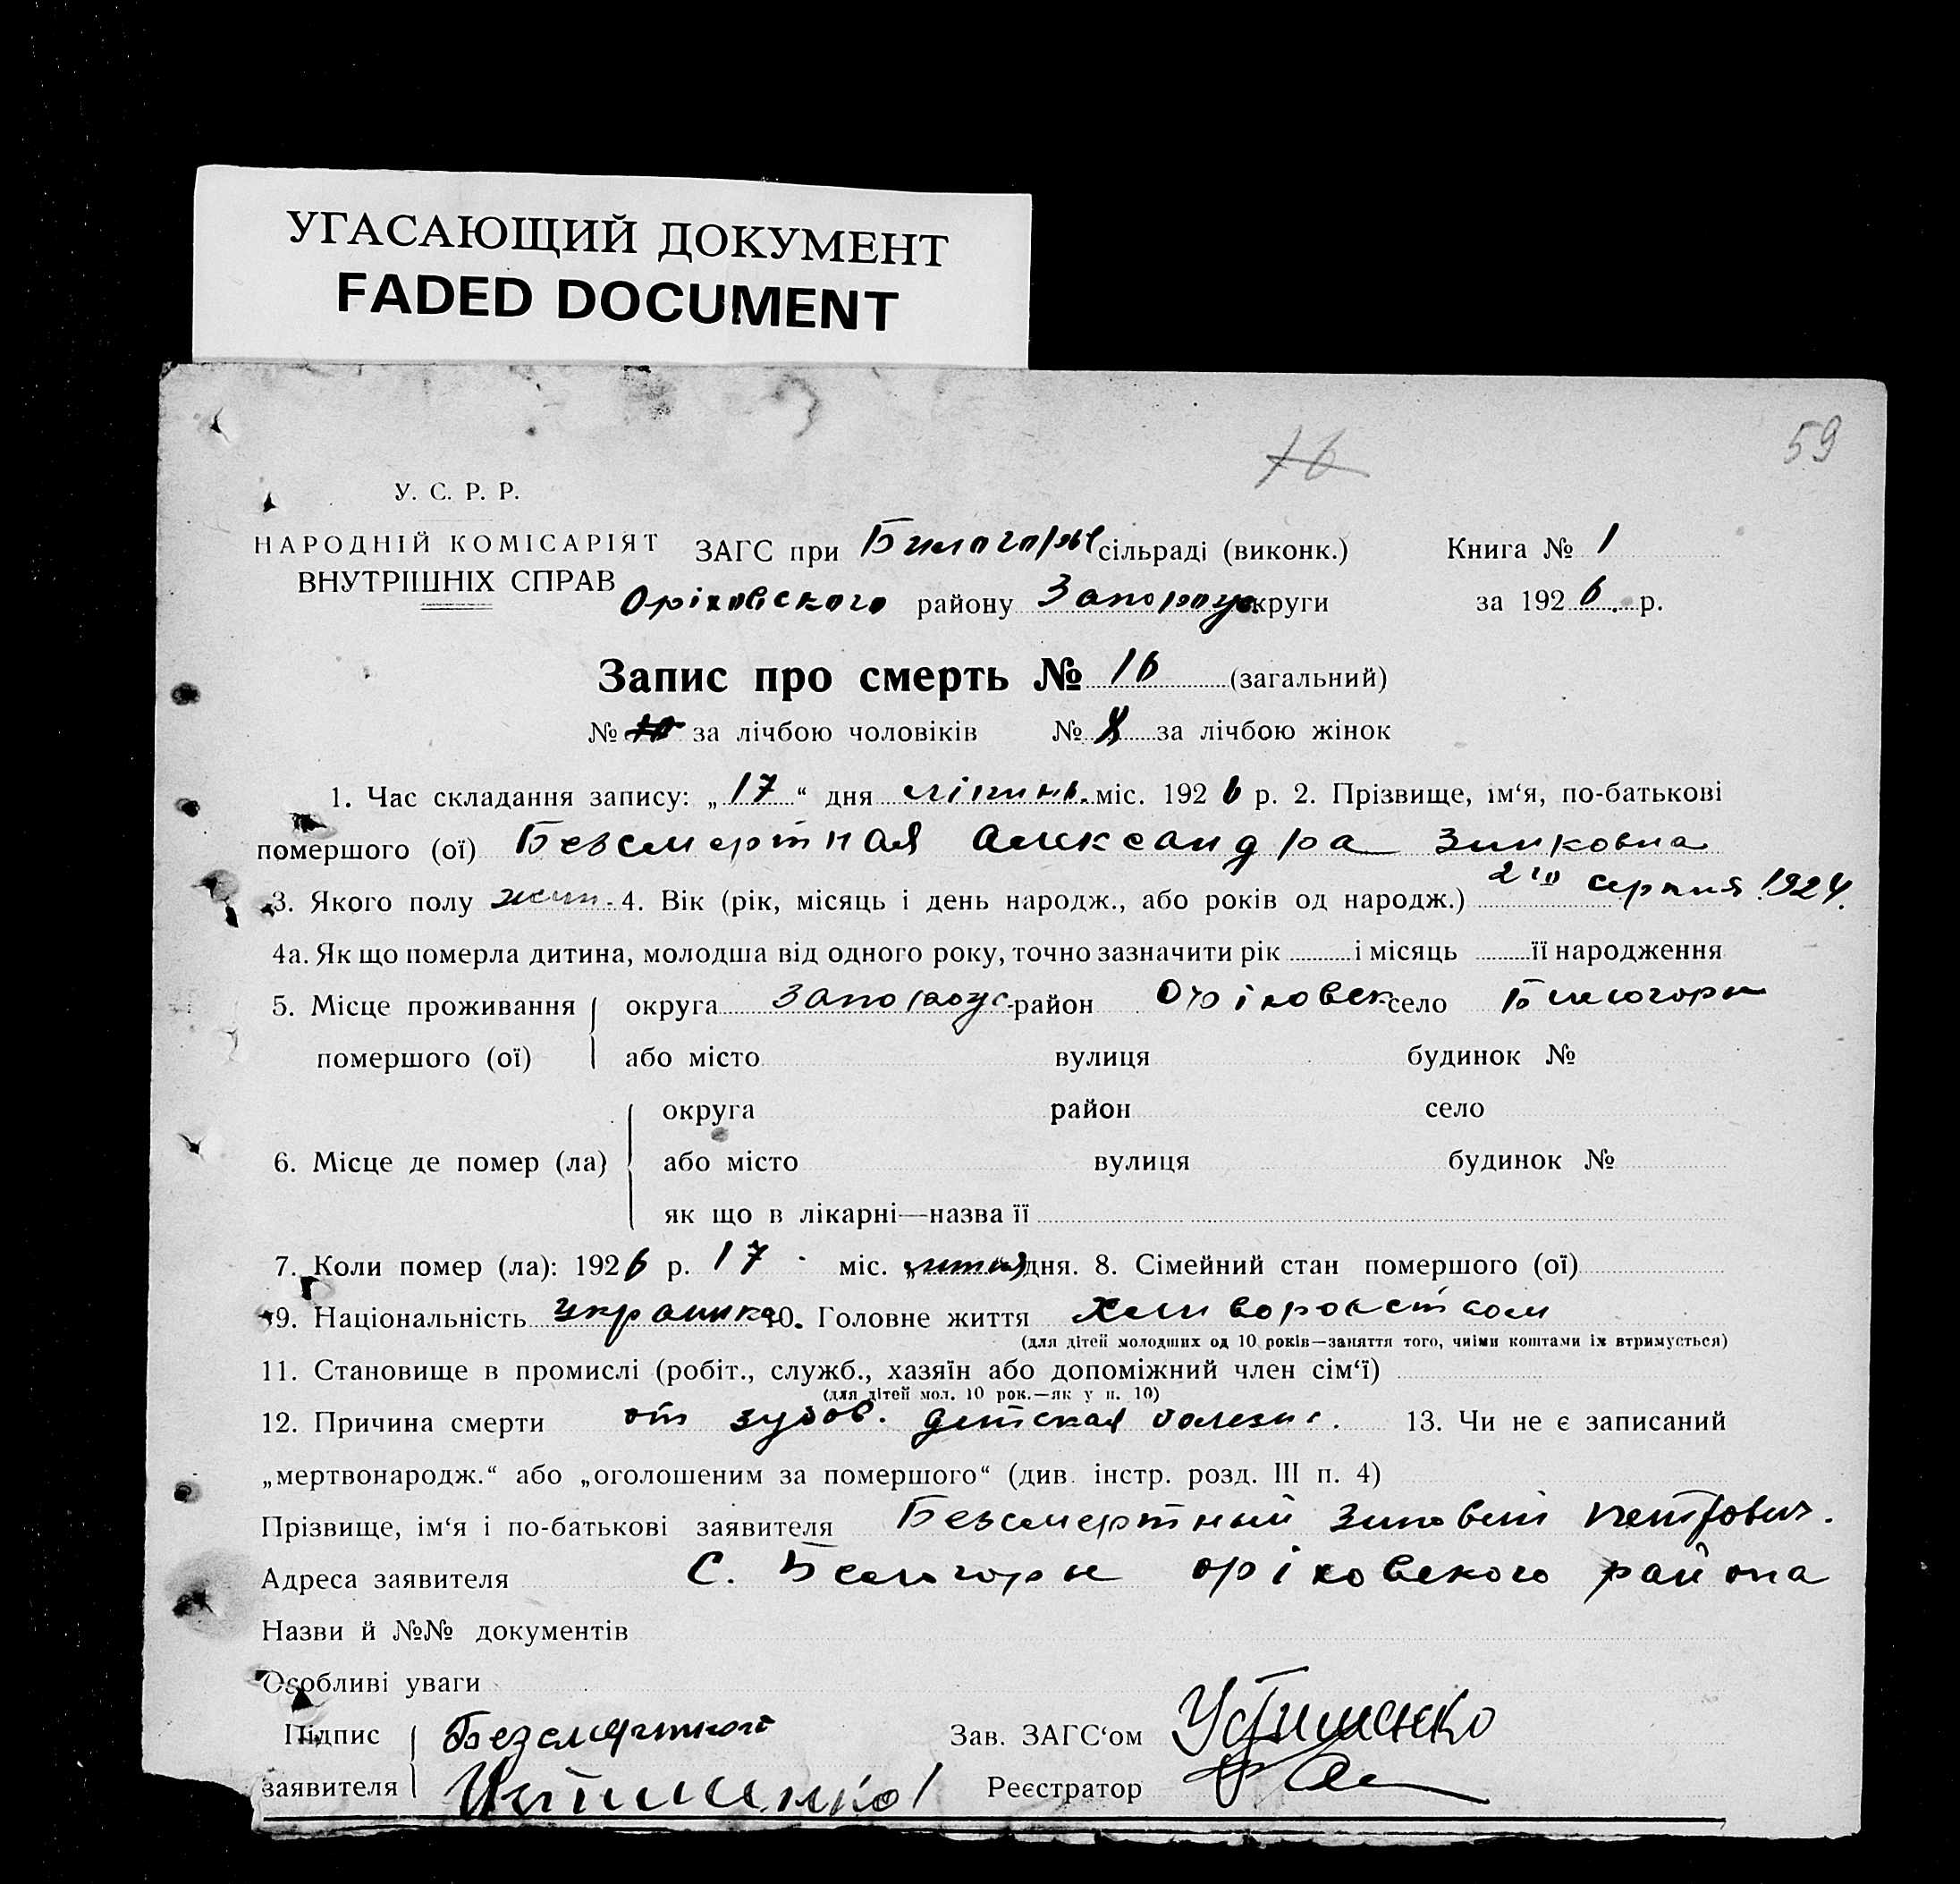 УГАСАЮЩИЙ ДОКУМЕНТ
FADED DOCUMENT
16 59
У. С. Р. Р.
НАРОДНІЙ КОМІСАРІЯТ
ВНУТРІШНІХ СПРАВ
ЗАГС при сільраді (виконк.) Книга № 1
Оріховского району Запороус округи за 1926 р.
Запис про смерть № 16 (загальний)
№ за лічбою чоловіків № 8 за лічбою жінок
1. Час складання запису: „17“ дня міс. 1926 р. 2. Прізвище, ім‘я, по-батькові
помершого (ої) Безсмертная Александра Зинковна
3. Якого полу жин. 4. Вік (рік, місяць і день народж., або років од народж.) 2го серпня 1924.
4а. Як що померла дитина, молодша від одного року, точно зазначити рік і місяць її народження
5. Місце проживання округа Запороус район Оріховск село Билогорье
помершого (ої) або місто вулиця будинок №
округа район село
6. Місце де помер (ла) або місто вулиця будинок №
як що в лікарні—назва її
7. Коли помер (ла): 1926 р. 17 міс. дня. 8. Сімейний стан помершого (ої)
9. Національність украинка 10. Головне життя
(для дітей молодших од 10 років—заняття того, чиїми коштами їх втримується)
11. Становище в промислі (робіт., служб., хазяїн або допоміжний член сім‘ї)
(для дітей мол. 10 рок.—як у п. 10)
12. Причина смерти от зубов. детская болезнь. 13. Чи не є записаний
„мертвонародж.“ або „оголошеним за помершого“ (див. інстр. розд. III п. 4)
Прізвище, ім‘я і по-батькові заявителя Безсмертный Зиновий Петрович.
Адреса заявителя С. Белогорье оріховского района
Назви й №№ документів
Особливі уваги
Підпис Безсмертного Зав. ЗАГС‘ом Устименко
заявителя Устименко Реєстратор